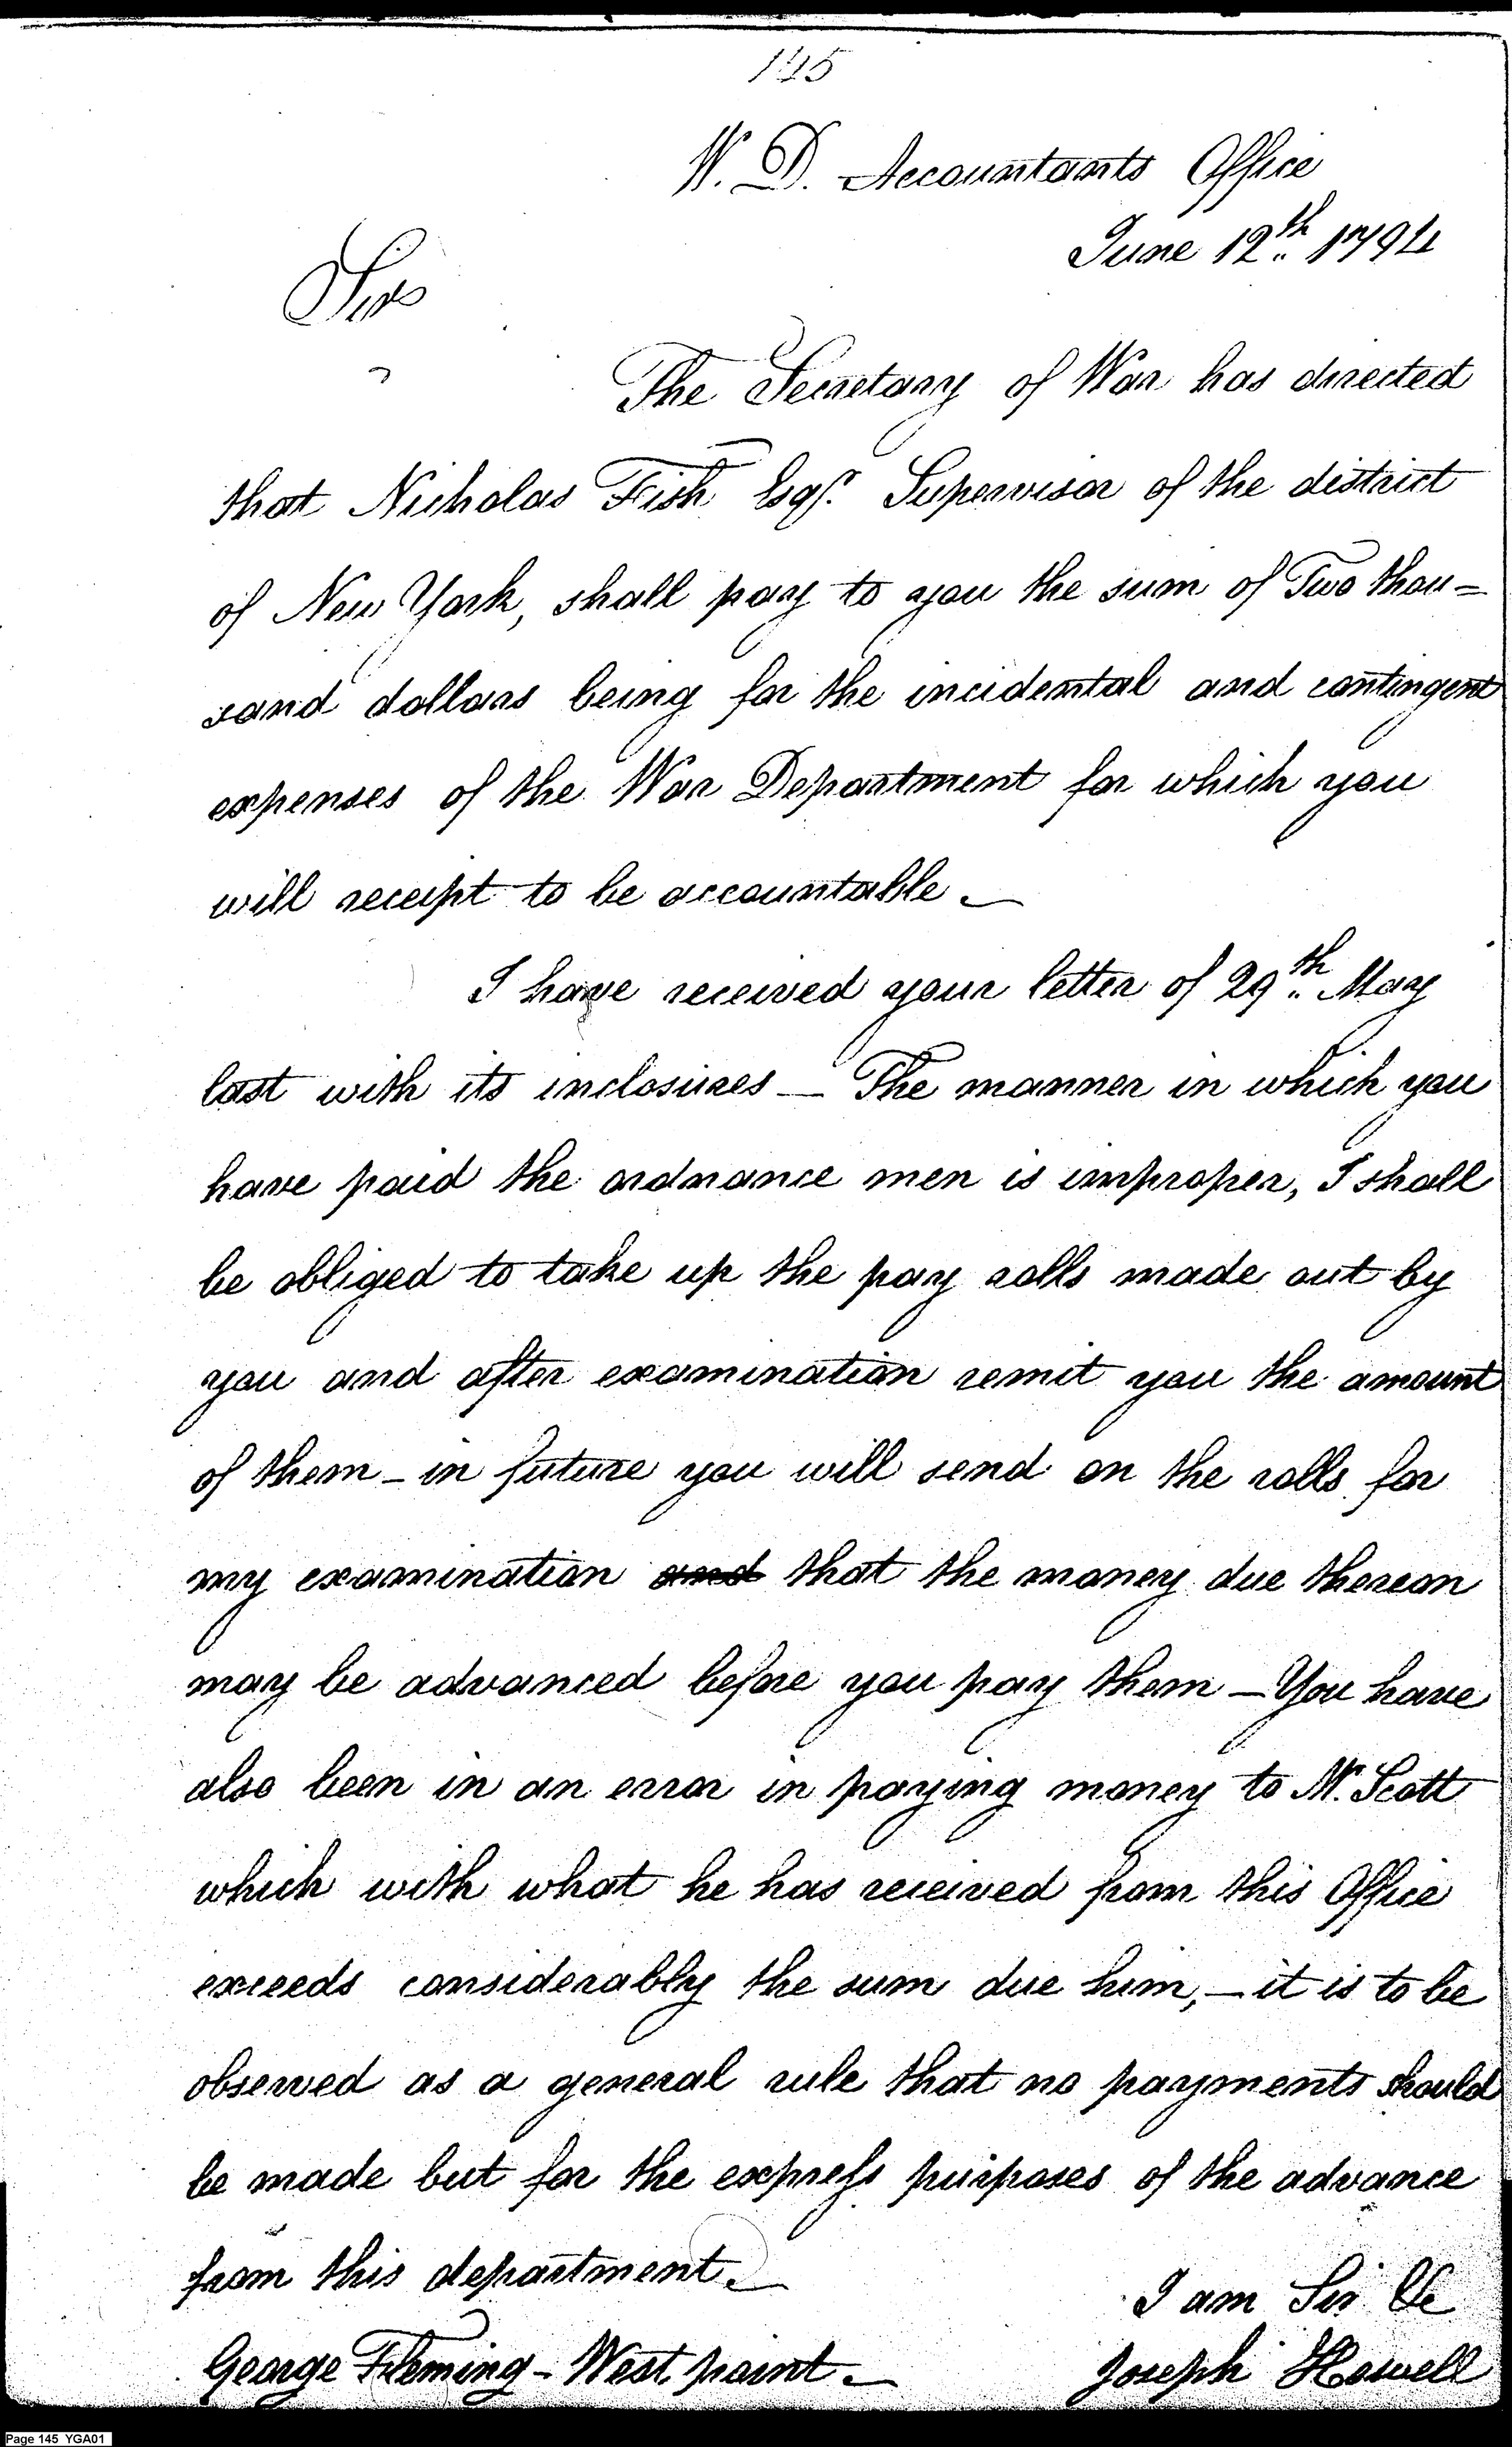 145
W. D. Accountants Office
June 12th 1794
Sir
The Secretary of War has directed
that Nicholas Fish Esqr. Supervisor of the district
of New York, shall pay to you the sum of Two thou=
sand dollars being for the incidental and contingent
expenses of the War Department for which you
will receipt to be accountable —
I have received your letter of 29th May
last with its inclosures — The manner in which you
have paid the ordnance men is improper, I shall
be obliged to take up the pay rolls made out by
you and after examination remit you the amount
of them — in future you will send on the rolls for
my examination and that the money due thereon
may be advanced before you pay them — You have
also been in an error in paying money to Mr. Scott
which with what he has received from this Office
exceeds considerably the sum due him, — it is to be
observed as a general rule that no payments should
be made but for the express purposes of the advance
from this department. —
I am Sir &c
George Fleming - West point —
Joseph Howell
Page 145 YGA01